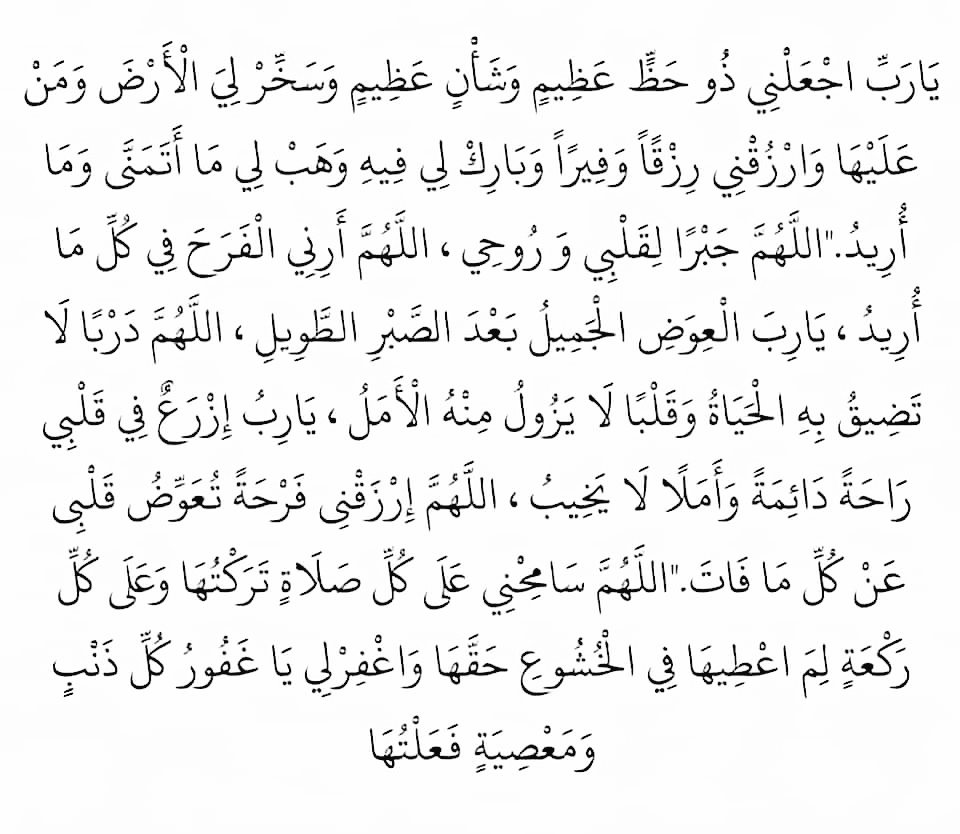 يَارَبِّ اجْعَلْنِي ذُو حَظٍّ عَظِيمٍ وَشَأْنٍ عَظِيمٍ وَسَخِّرْ لِيَ الْأَرْضَ وَمَنْ
عَلَيْهَا وَارْزُقْنِي رِزْقًاً وَفِيرًاً وَبَارِكْ لِي فِيهِ وَهَبْ لِي مَا أَتَمَنَّى وَمَا
أُرِيدُ."اللَّهُمَّ جَبْرًا لِقَلْبِي وَ رُوحِي ، اللَّهُمَّ أَرِنِي الْفَرَحَ فِي كُلِّ مَا
أُرِيدُ ، يَارِبَ الْعِوَضِ الْجَمِيلُ بَعْدَ الصَّبْرِ الطَّوِيلِ ، اللَّهُمَّ دَرْبًا لَا
تَضِيقُ بِهِ الْحَيَاةُ وَقَلْبًا لَا يَزُولُ مِنْهُ الْأَمَلُ ، يَارِبُ إِزْرَعٌ فِي قَلْبِي
رَاحَةً دَائِمَةً وَأَمَلًا لَا يَخِيبُ ، اللَّهُمَّ إِرْزَقْنِى فَرْحَةً تُعَوِّضُ قَلْبِى
عَنْ كُلِّ مَا فَاتَ."اللَّهُمَّ سَامِحْنِي عَلَى كُلِّ صَلَاةٍ تَرَكْتُهَا وَعَلَى كُلِّ
رَكْعَةٍ لِمَ اعْطِيهَا فِي الْخُشُوعِ حَقَّهَا وَاغْفِرْلِي يَا غَفُورُ كُلِّ ذَنْبٍ
وَمَعْصِيَةٍ فَعَلْتُهَا